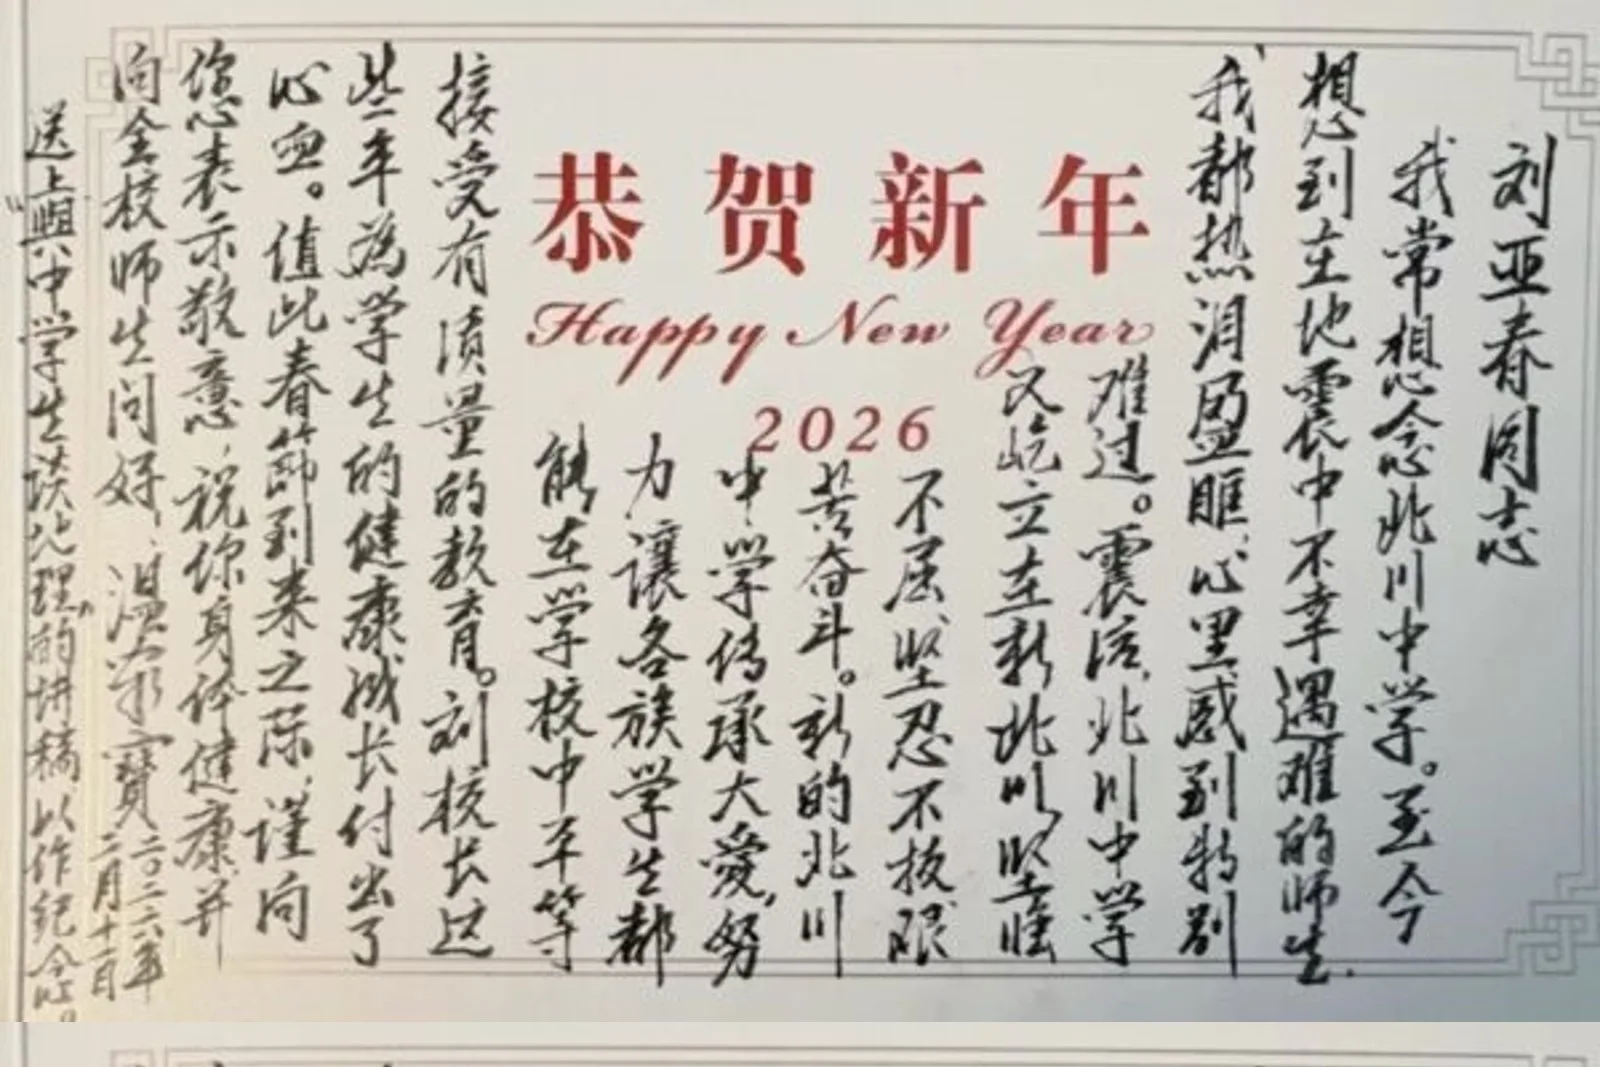 恭贺新年
Happy New Year
2026
刘亚春同志
我常想念北川中学。至今
想到在地震中不幸遇难的师生,
我都热泪盈眶,心里感到特别
难过。震后,北川中学
又屹立在新北川,坚强
不屈、坚忍不拔、艰
苦奋斗。新的北川
中学传承大愛,努
力,讓各族学生都
能在学校中平等
接受有质量的教育。刘校长这
些年為学生的健康成长付出了
心血。值此春节到来之际,谨向
您表示敬意,祝你身体健康,并
向全校师生问好,温家寶
二〇二六年
二月十一日
送上"與中学生谈地理"的讲稿,以作纪念。